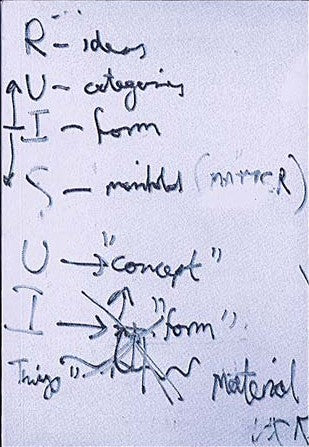 R - ideas
U - categories
I - form
S - manifold (mirror)
U → "concept"
I → "form"
Things"
Material